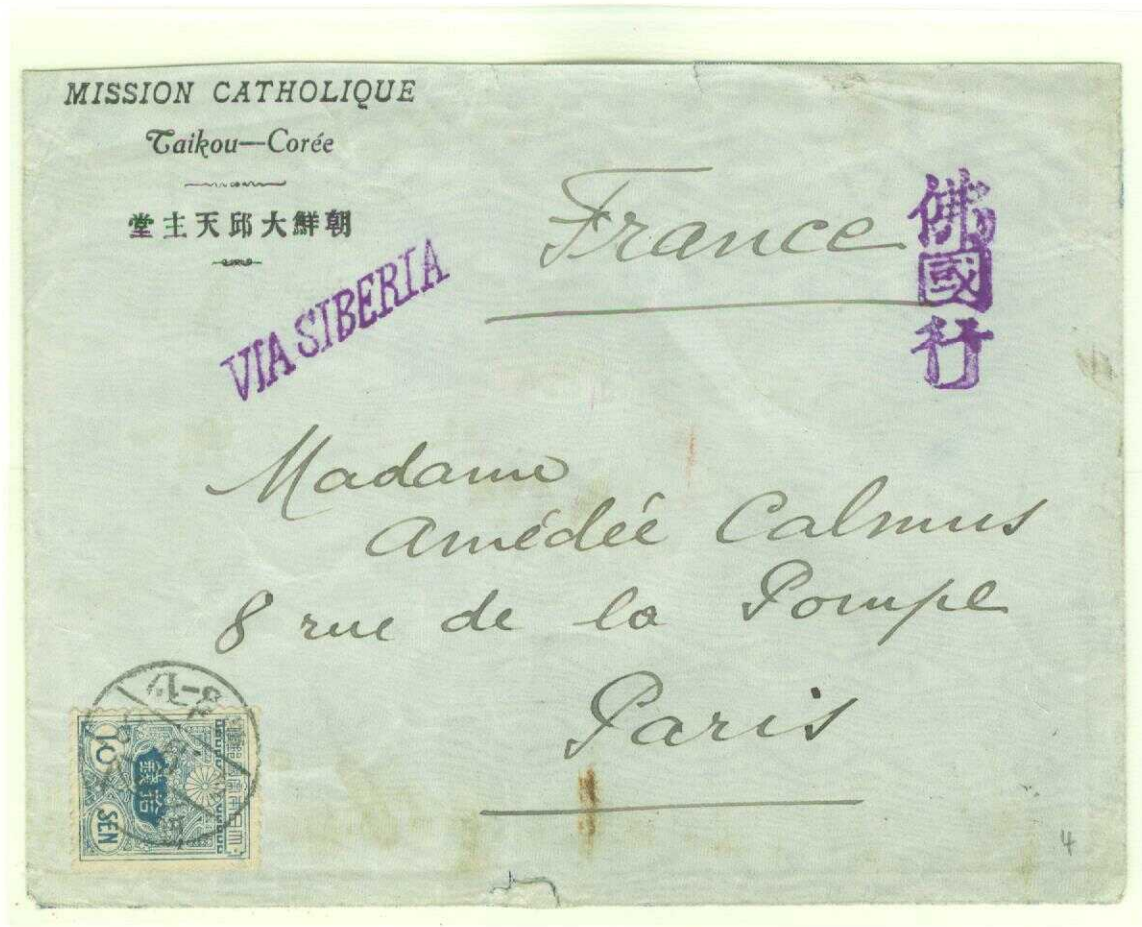 MISSION CATHOLIQUE
Taikou—Corée
朝鮮大邱天主堂
VIA SIBERIA
France
佛國行
Madame
Amédée Calmus
8 rue de la Pompe
Paris
拾錢
10 SEN
4